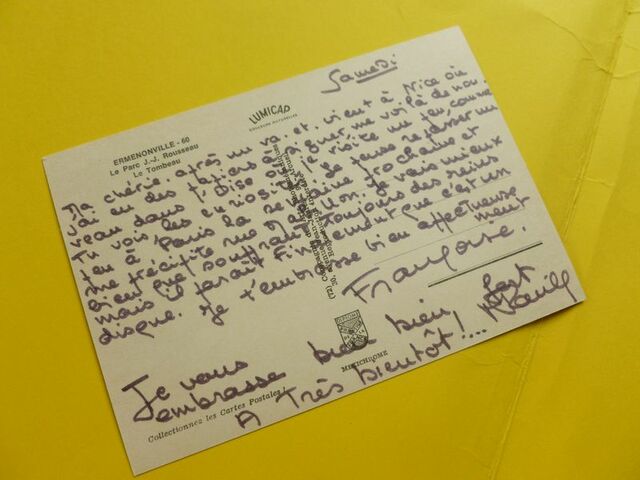 Samedi
LUMICAP
COULEURS NATURELLES
ERMENONVILLE - 60
Le Parc J.-J. Rousseau
Le Tombeau
Ma chérie. après un va. et. vient à Nice où
j'ai eu des papiers à signer, me voilà de nou-
veau dans l'Oise où je visite un peu, comme
Tu vois les curiosités. Je pense repasser un
peu à Paris la semaine prochaine et
me précipite rue Je vais mieux
bien que souffrant toujours des reins
mais il paraît finalement que c'est un
disque. Je t'embrasse bien affectueuse
ment
Françoise.
Je vous bien bien fort
embrasse
A Très bientôt!....
MEXICHROME
Collectionnez les Cartes Postales!